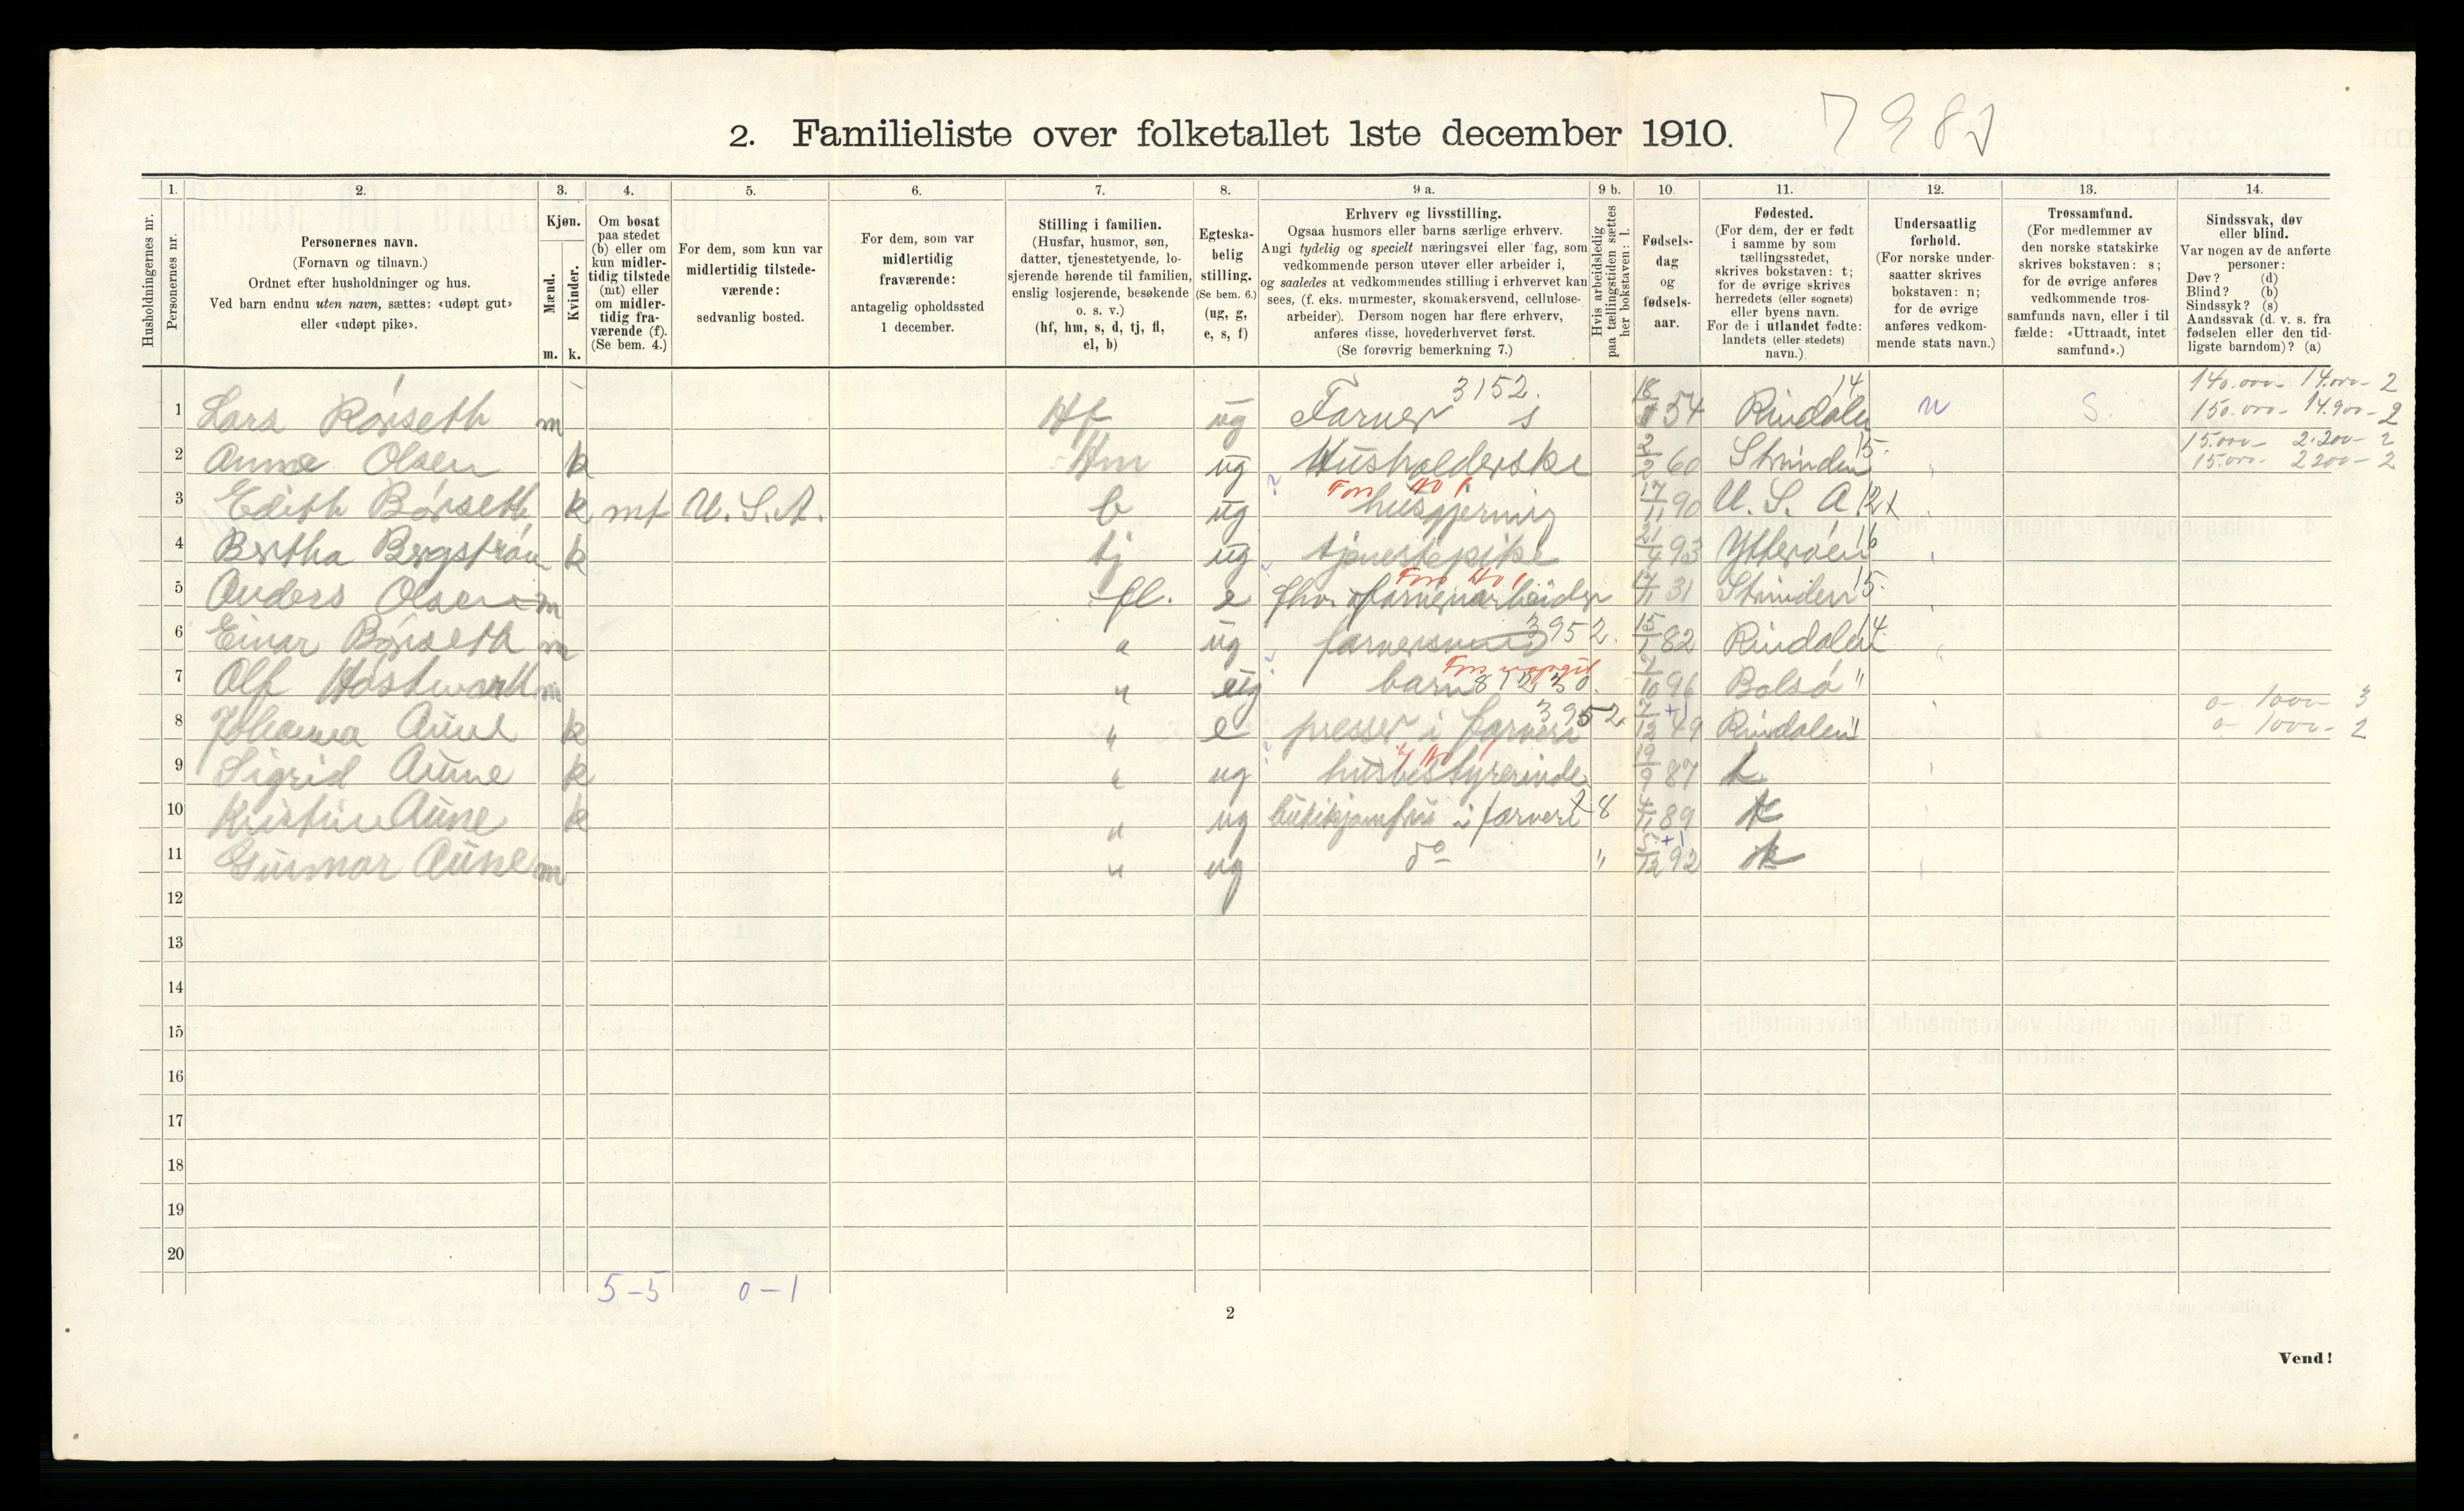 2. Familieliste over folketallet 1ste december 1910.
Husholdningernes nr.
1. Personernes nr.
2. Personernes navn.
(Fornavn og tilnavn.)
Ordnet efter husholdninger og hus.
Ved barn endnu uten navn, sættes: «udøpt gut»
eller «udøpt pike».
3. Kjøn.
Mænd. m.
Kvinder. k.
4. Om bosat
paa stedet
(b) eller om
kun midler-
tidig tilstede
(mt) eller
om midler-
tidig fra-
værende (f).
(Se bem. 4.)
5. For dem, som kun var
midlertidig tilstede-
værende:
sedvanlig bosted.
6. For dem, som var
midlertidig
fraværende:
antagelig opholdssted
1 december.
7. Stilling i familien.
(Husfar, husmor, søn,
datter, tjenestetyende, lo-
sjerende hørende til familien,
enslig losjerende, besøkende
o. s. v.)
(hf, hm, s, d, tj, fl,
el, b)
8. Egteska-
belig
stilling.
(Se bem. 6.)
(ug, g,
e, s, f)
9 a. Erhverv og livsstilling.
Ogsaa husmors eller barns særlige erhverv.
Angi tydelig og specielt næringsvei eller fag, som
vedkommende person utøver eller arbeider i,
og saaledes at vedkommendes stilling i erhvervet kan
sees, (f. eks. murmester, skomakersvend, cellulose-
arbeider). Dersom nogen har flere erhverv,
anføres disse, hovederhvervet først.
(Se forøvrig bemerkning 7.)
9 b. Hvis arbeidsledig
paa tællingstiden sættes
her bokstaven: l.
10. Fødsels-
dag
og
fødsels-
aar.
11. Fødested.
(For dem, der er født
i samme by som
tællingsstedet,
skrives bokstaven: t;
for de øvrige skrives
herredets (eller sognets)
eller byens navn.
For de i utlandet fødte:
landets (eller stedets)
navn.)
12. Undersaatlig
forhold.
(For norske under-
saatter skrives
bokstaven: n;
for de øvrige
anføres vedkom-
mende stats navn.)
13. Trossamfund.
(For medlemmer av
den norske statskirke
skrives bokstaven: s;
for de øvrige anføres
vedkommende tros-
samfunds navn, eller i til
fælde: «Uttraadt, intet
samfund».)
14. Sindssvak, døv
eller blind.
Var nogen av de anførte
personer:
Døv? (d)
Blind? (b)
Sindssyk? (s)
Aandssvak (d. v. s. fra
fødselen eller den tid-
ligste barndom)? (a)
3152. 14
1 Lars Rørseth m Hf ug Farver s 54 Rindalen n S.
2 Anna Olsen k Hm ug Husholderske 2/2 60 Strinden 15.
3 Edith Børseth k mt U.S.A. b ug husgjerning 17/11 90 U.S.A.
4 Bertha Bergstrøm k tj ug tjenestepike 21/4 93 Ytterøen
5 Anders Olsen m fl. e fhv. farveriarbeider 17/11 31 Strinden 15.
6 Einar Børseth m " ug farversvend 3952. 15/1 82 Rindalen 14.
7 Olf m " ug barn 10 96 Bolsø "
8 Johanna Aune k " e presser i farveri 3952. 12 49 Rindalen "
9 Sigrid Aune k " ug husbestyrerinde 19/9 87 t
10 Kristine Aune k " ug butikjomfru i farveri 89 t
11 Gunnar Aune m " ug do " 5/12 92 t
12
13
14
15
16
17
18
19
20
5-5 0-1
2
Vend!